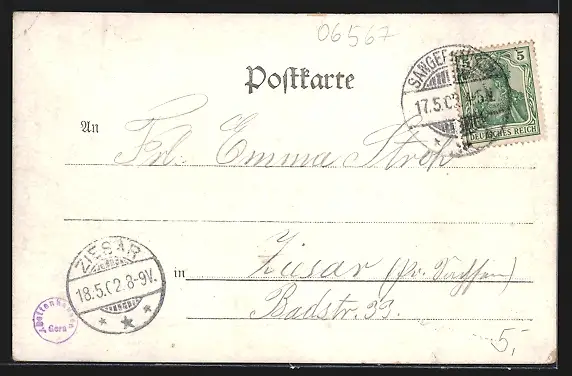 06567
Postkarte
SANGERHAUSEN
17.5.02 4-5N.
5
DEUTSCHES REICH
An
Frl. Emma Stroh
ZIESAR
18.5.02.8-9V.
in Ziesar (Pr. Sachsen)
Badstr. 39.
Gera
5,-